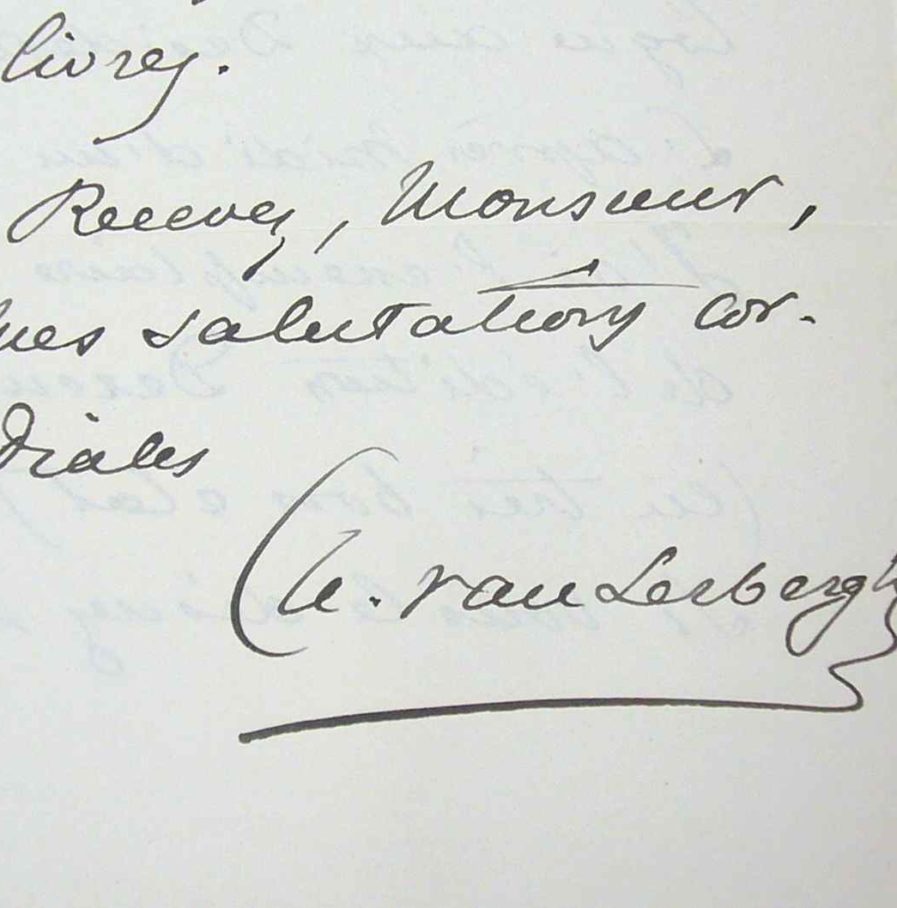 livres.
Recevez, Monsieur,
mes salutations cor-
diales
Ch. van Lerberghe